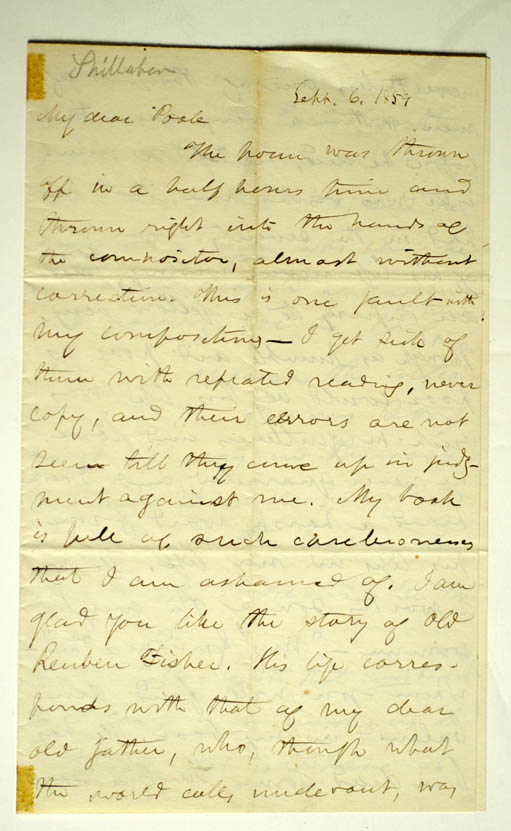 Shillaber
Sept. 6. 1859
My dear Poole
The poem was thrown
off in a half hours time and
thrown right into the hands of
the compositor, almost without
correction. This is one fault with
my compositions — I get sick of
them with repeated reading, never
copy, and their errors are not
seen till they come up in judg-
ment against me. My book
is full of such carelessnesses
that I am ashamed of. I am
glad you like the story of old
Reuben Fisher. His life corres-
ponds with that of my dear
old father, who, though what
the world calls undevout, was